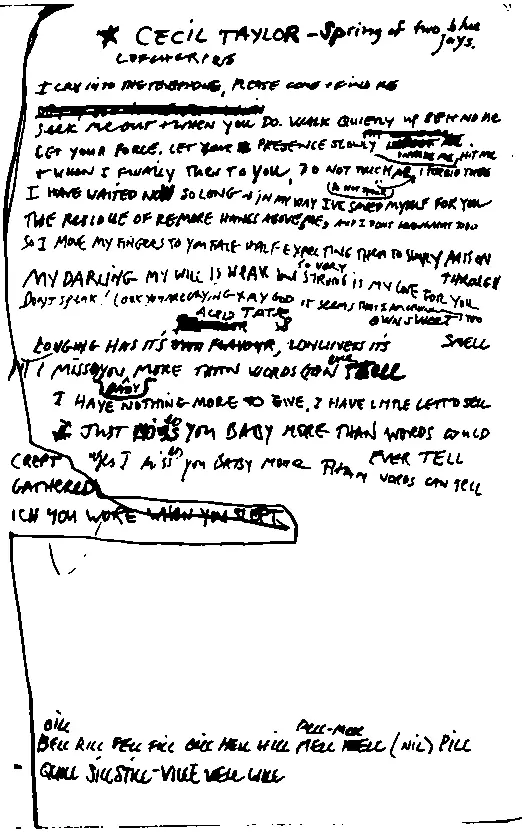 * CECIL TAYLOR - Spring of two blue
jays.
I CRY INTO THE TELEPHONE, PLEASE COME + FIND ME
SEEK ME OUT + WHEN YOU DO. WALK QUIETLY UP BEHIND ME
LET YOUR FORCE. LET YOUR PRESENCE SLOWLY INVADE ME, HIT ME
+ WHEN I FINALLY TURN TO YOU, DO NOT TOUCH ME, I FORBID THIS
DO NOT TOUCH
I HAVE WAITED NOW SO LONG + IN MY WAY I'VE SAVED MYSELF FOR YOU
THE RESIDUE OF REMORE HANGS ABOVE ME, AND I DON'T KNOW WHAT TO DO
SO I MOVE MY FINGERS TO YOUR FACE HALF EXPECTING THEM TO
THROUGH
MY DARLING MY WILL IS WEAK BUT SO VERY STRONG IS MY LOVE FOR YOU
DON'T SPEAK! LOOK YOU ARE CRYING + MY GOD IT SEEMS THAT I AM TOO
ACID TASTE
OWN SWEET
LONGING HAS IT'S FLAVOUR, LONLINESS IT'S SMELL
I MISS YOU, MORE THAN WORDS CAN EVER TELL
BABY
I HAVE NOTHING MORE TO GIVE, I HAVE LITTLE LEFT TO SELL
I JUST MISS YOU SO BABY MORE THAN WORDS COULD
EVER TELL
CREPT YES I MISS YOU SO BABY MORE THAN WORDS CAN TELL
GATHERED
ICH YOU WOKE WHEN YOU SLEPT
DILL PELL-MELL
BELL RILL FELL FILL GILL HELL HILL MELL (NIL) PILL
QUILL SILL STILL - VILLE WELL WILL